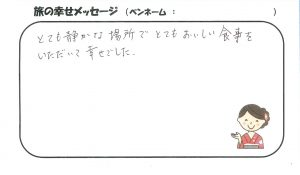 旅の幸せメッセージ（ペンネーム：　　　　　　　　）
とても静かな場所でとてもおいしい食事を
いただいて幸せでした。